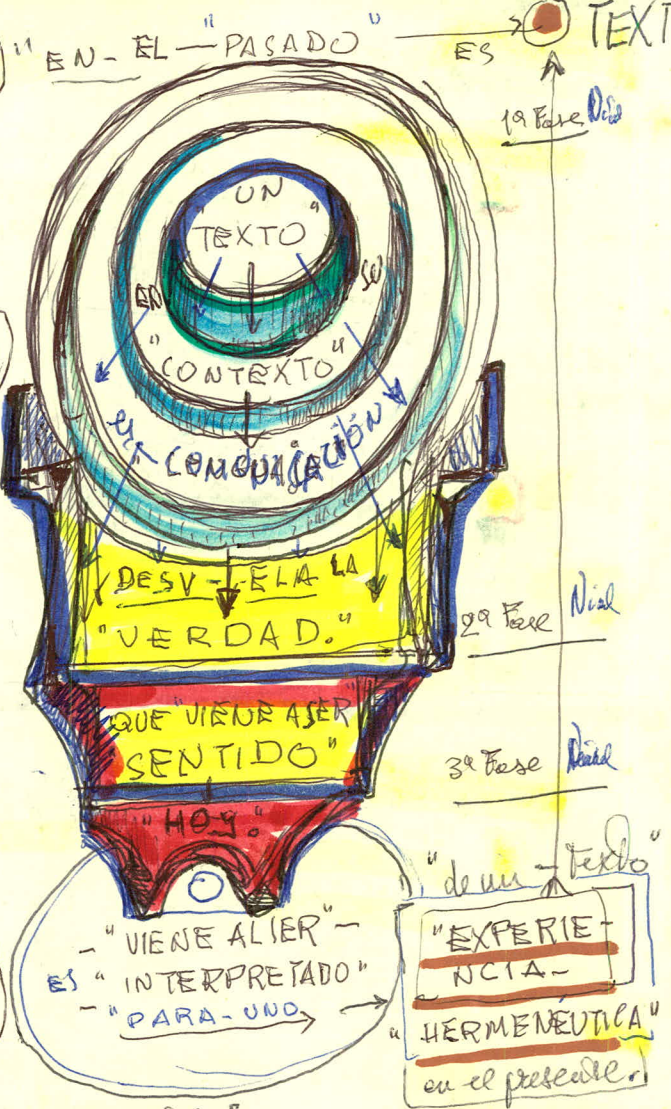 "EN-EL-"PASADO"
ES
TEXT
1ª Fase
"UN
TEXTO"
EN SU
"CONTEXTO"
COMUNICACIÓN
DESV-ELA LA
"VERDAD."
2ª Fase
QUE "VIENE A SER
SENTIDO"
3ª Fase
"HOY."
"de un-Texto"
-"VIENE AL SER"-
ES "INTERPRETADO"
-"PARA-UNO
"EXPERIE-
NCIA-
"HERMENÉUTICA"
en el presente.